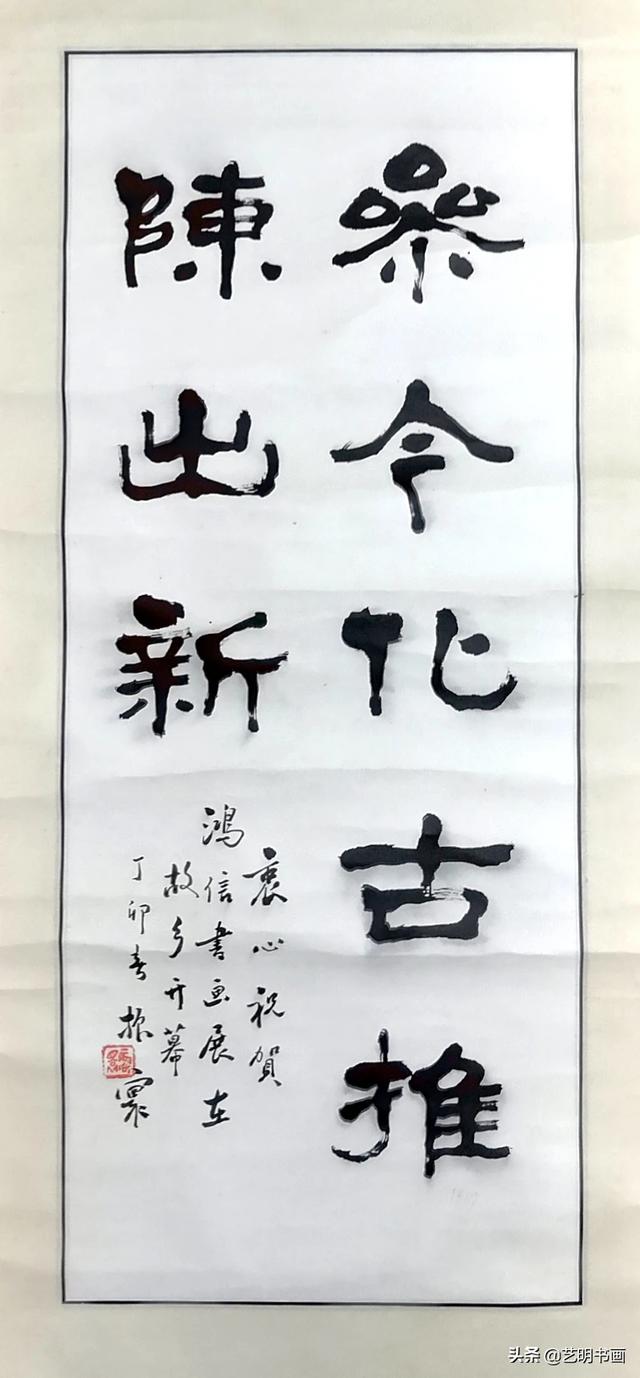 參今化古推
陳出新
衷心祝賀
鴻信書画展在
故乡开幕
丁卯春振寰
头条 @艺明书画